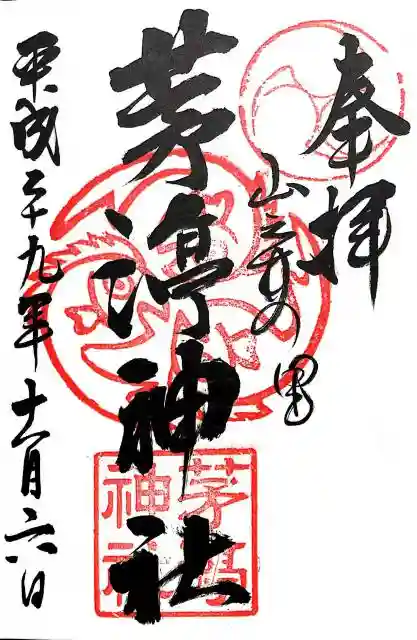 奉拝
山斉の里
茅渟神社
平成二十九年十一月六日
茅渟
神社